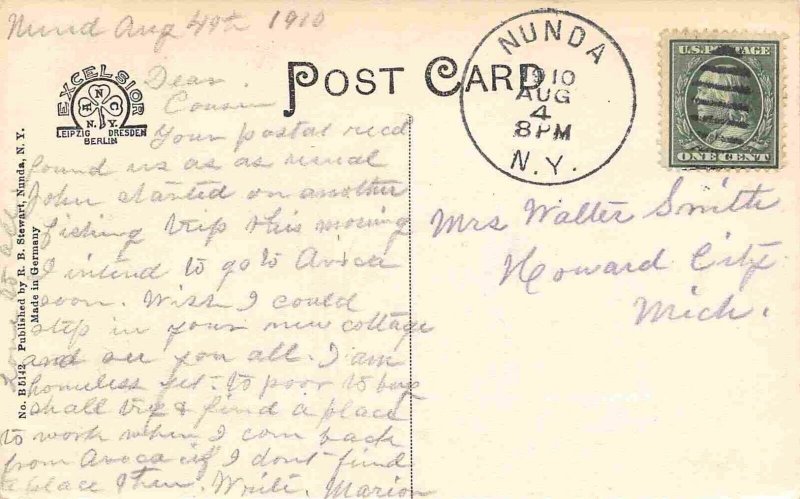 Nund Aug 4th 1910
EXCELSIOR
A N C
N.Y.
LEIPZIG DRESDEN
BERLIN
POST CARD
NUNDA
1910
AUG
4
8 PM
N.Y.
U.S. POSTAGE
ONE CENT
Dear
Cousin
Your postal recd
found us as as usual
John started on another
fishing trip this morning
I intend to go to Avoca
soon. Wish I could
step in your new cottage
and see you all. I am
homeless yet. to poor to buy
shall try & find a place
to work when I com back
from Avoca if I dont find
a place then. Write. Marion
Love to all
Mrs Walter Smith
Howard City
Mich.
No. B 5142 Published by R. B. Stewart, Nunda, N. Y.
Made in Germany